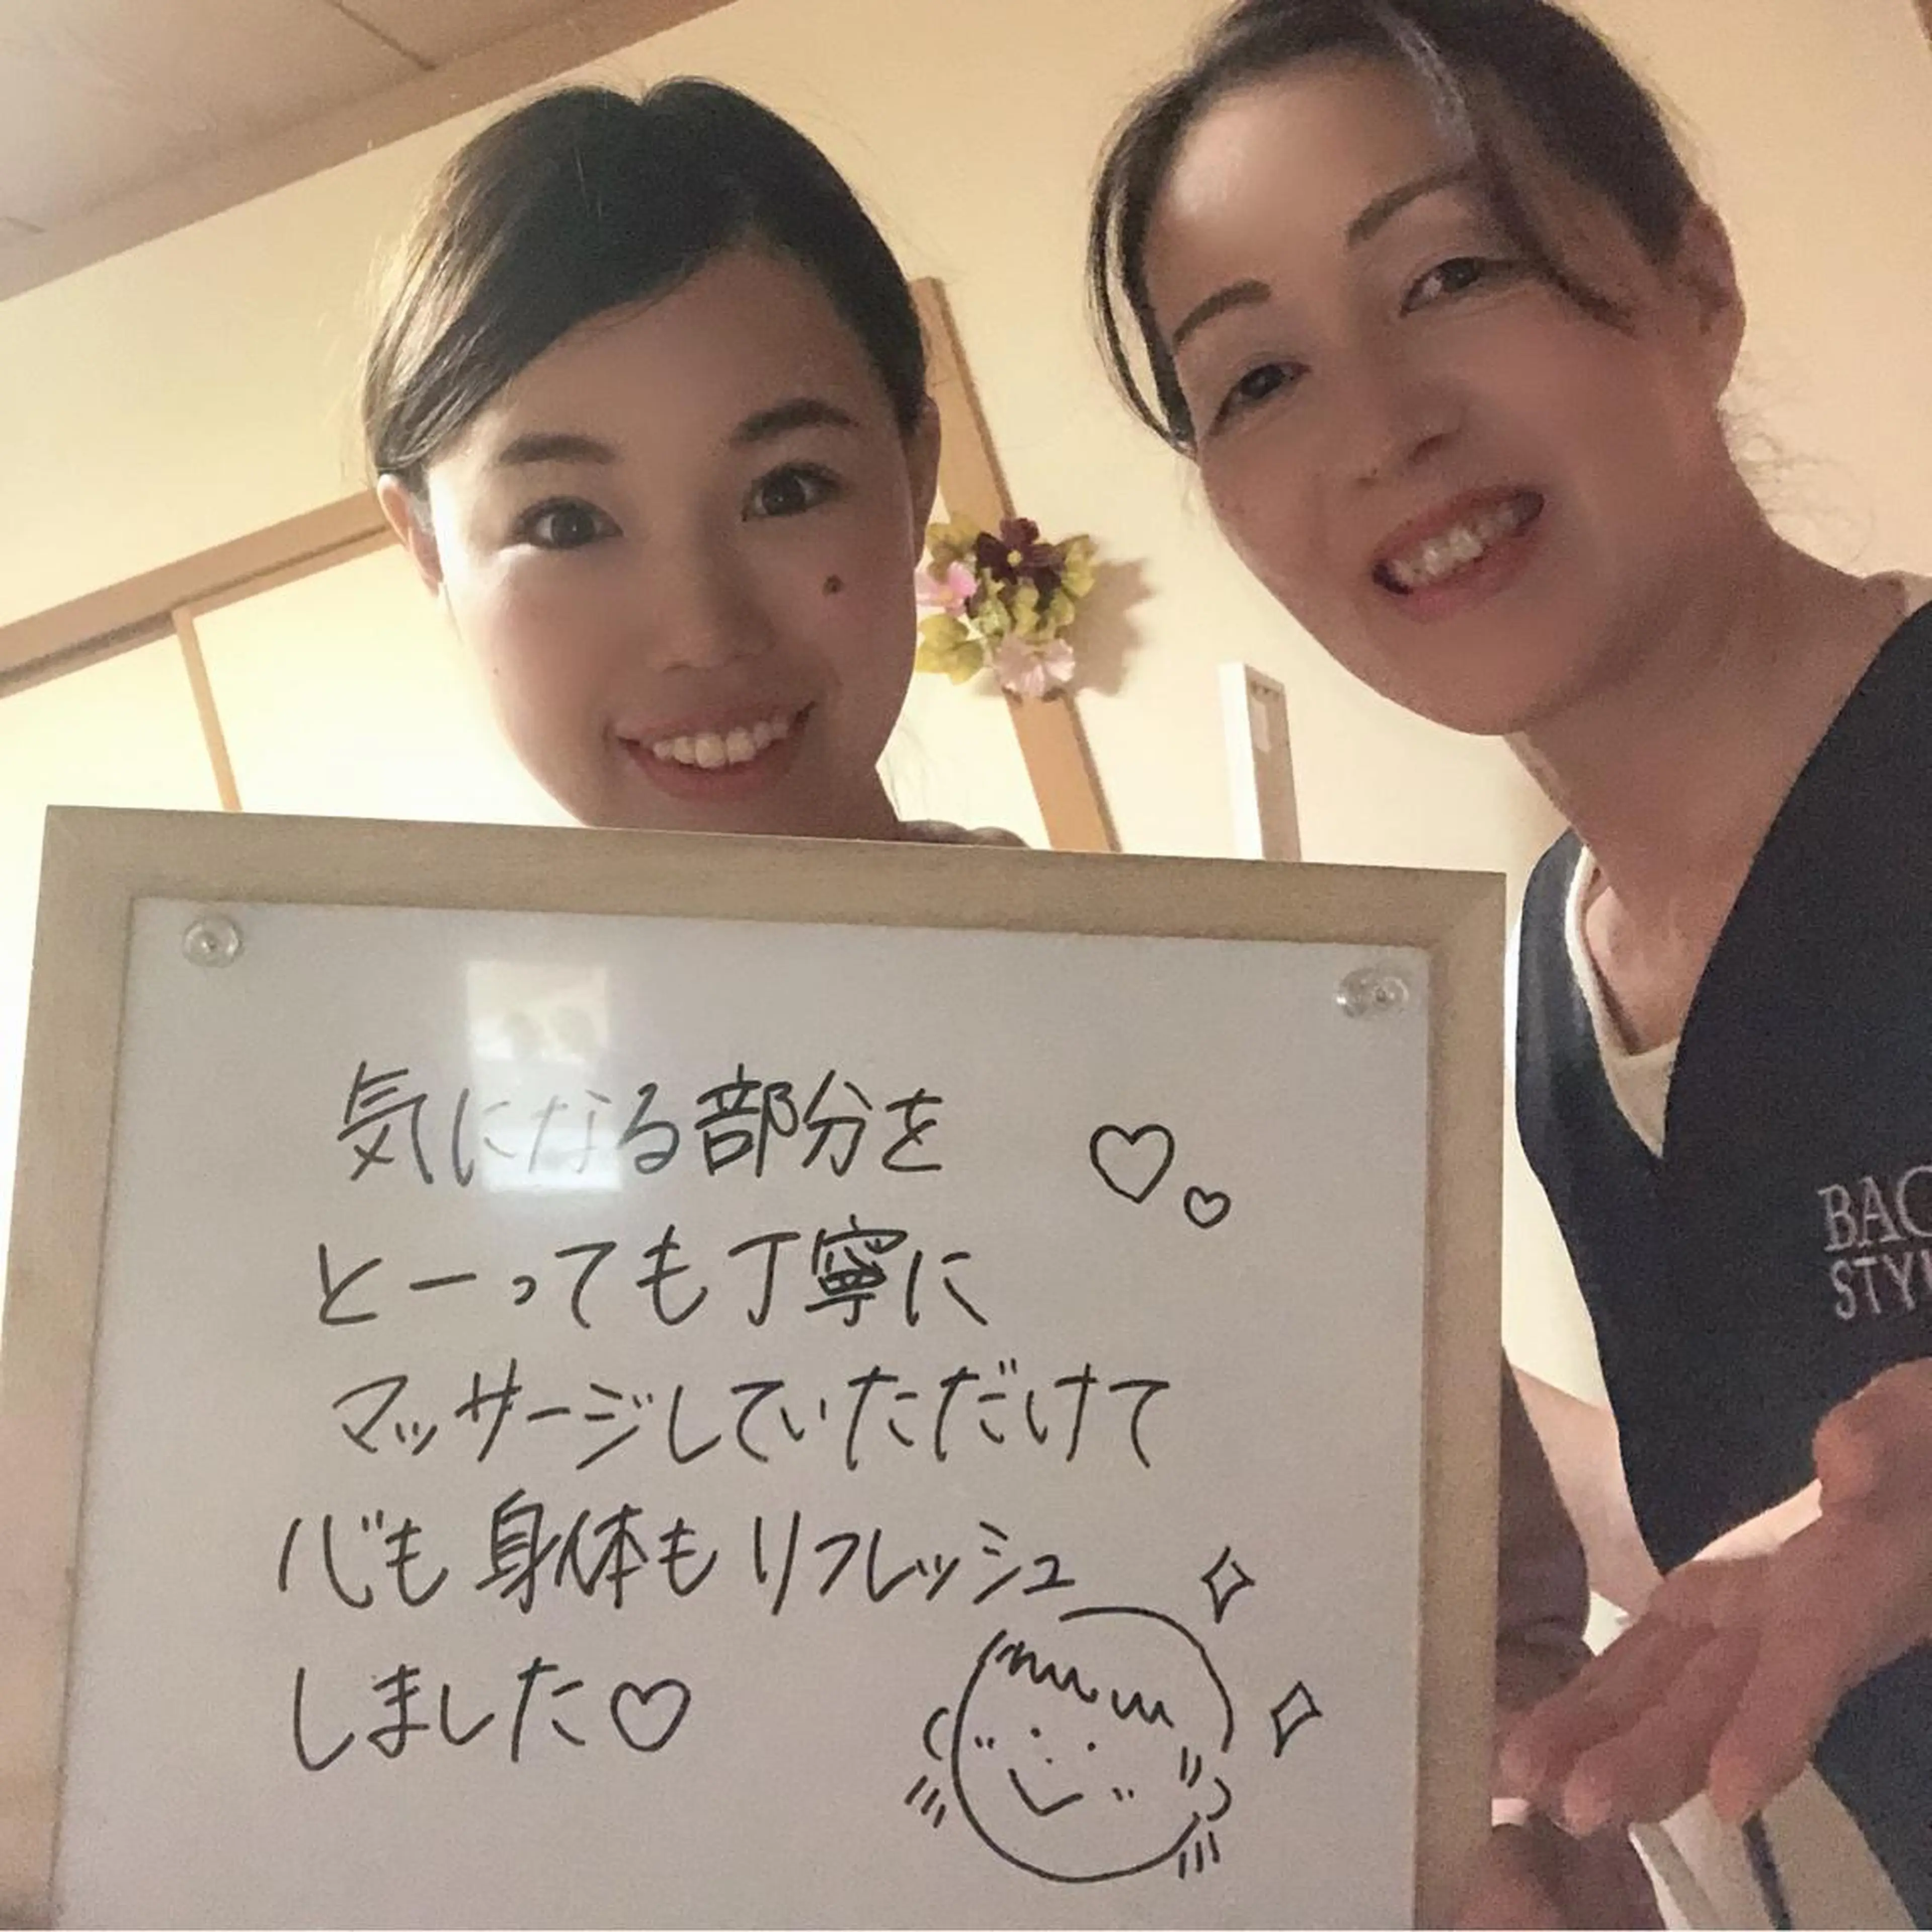 気になる部分を
とーっても丁寧に
マッサージしていただけて
心も身体もリフレッシュ
しました♡
BAC
STY